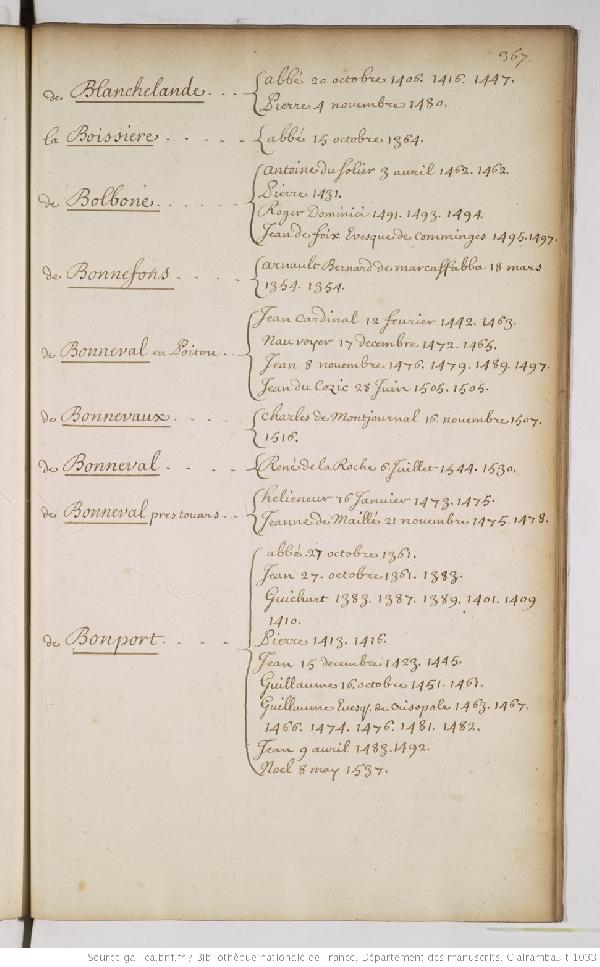 367.
de Blanchelande . . . abbé 20 octobre 1406. 1416. 1447.
Pierre 4 novembre 1480.
la Boissiere . . . . . abbé 15 octobre 1364.
antoine du solier 3 auril 1462. 1462.
Pierre 1431.
de Bolbone . . . . .
Roger Dominici 1491. 1493. 1494.
Jean de foix Evesque de Comminges 1495. 1497.
de Bonnefons . . . . arnault Bernard de marcaffabba 18 mars
1354. 1354.
Jean Cardinal 12 feurier 1442. 1463.
Nau voyer 17 decembre 1472. 1465.
de Bonneval en Poitou . .
Jean 8 novembre 1476. 1479. 1489. 1497.
Jean du Cozic 28 Juin 1505. 1505.
de Bonnevaux . . . . Charles de Montjournal 16 novembre 1507.
1516.
de Bonneval . . . . René de la Roche 6 Juillet 1544. 1530.
de Bonneval pres touars . . helieneur 16 Januier 1473. 1475.
Jeanne de Maillé 21 novembre 1475. 1478.
abbé 27 octobre 1361.
Jean 27. octobre 1361. 1383.
Guichart 1383. 1387. 1389. 1401. 1409
1410.
de Bonport . . . . Pierre 1413. 1416.
Jean 15 decembre 1423. 1445.
Guillaume 16. octobre 1451. 1461.
Guillaume Evesq. de Crisopole 1463. 1467.
1466. 1474. 1476. 1481. 1482.
Jean 9 auril 1483. 1492.
Noel 8 may 1537.
Source gallica.bnf.fr / Bibliothèque nationale de France. Département des manuscrits. Clairambault 1033